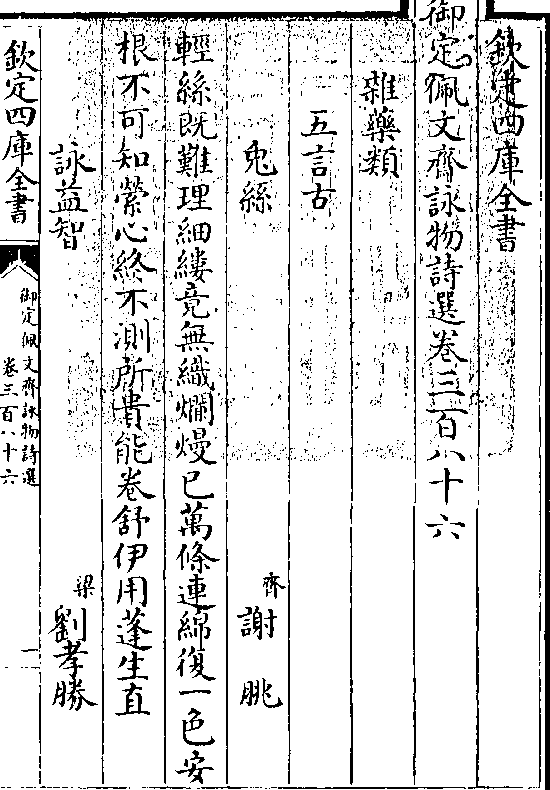 欽定四庫全書
御定佩文齋詠物詩選卷三百八十六
雜藥類
五言古
兎絲 齊 謝朓
輕絲既難理細縷竟無織爛熳已萬條連綿復一色安
根不可知縈心終不測所貴能卷舒伊用蓬生直
詠益智 梁 劉孝勝
欽定四庫全書 御定佩文齋詠物詩選 卷三百八十六 一